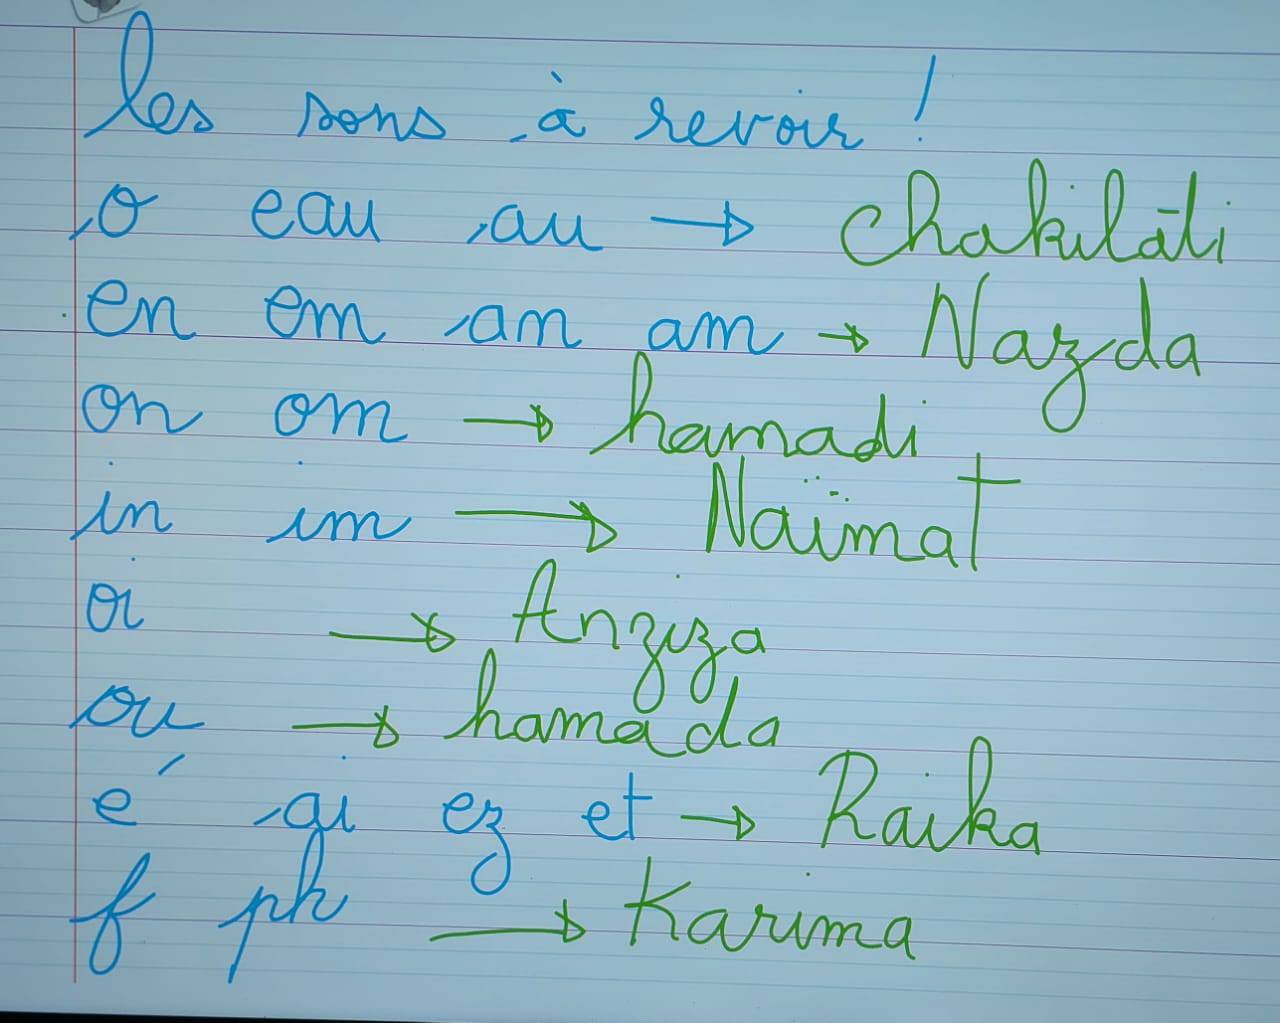 les sons à revoir !
o eau au → chakilati
en em an am → Nazda
on om → hamadi
in im → Naïmat
oi → Anziza
ou → hamada
é ai ez et → Raika
f ph → Karima